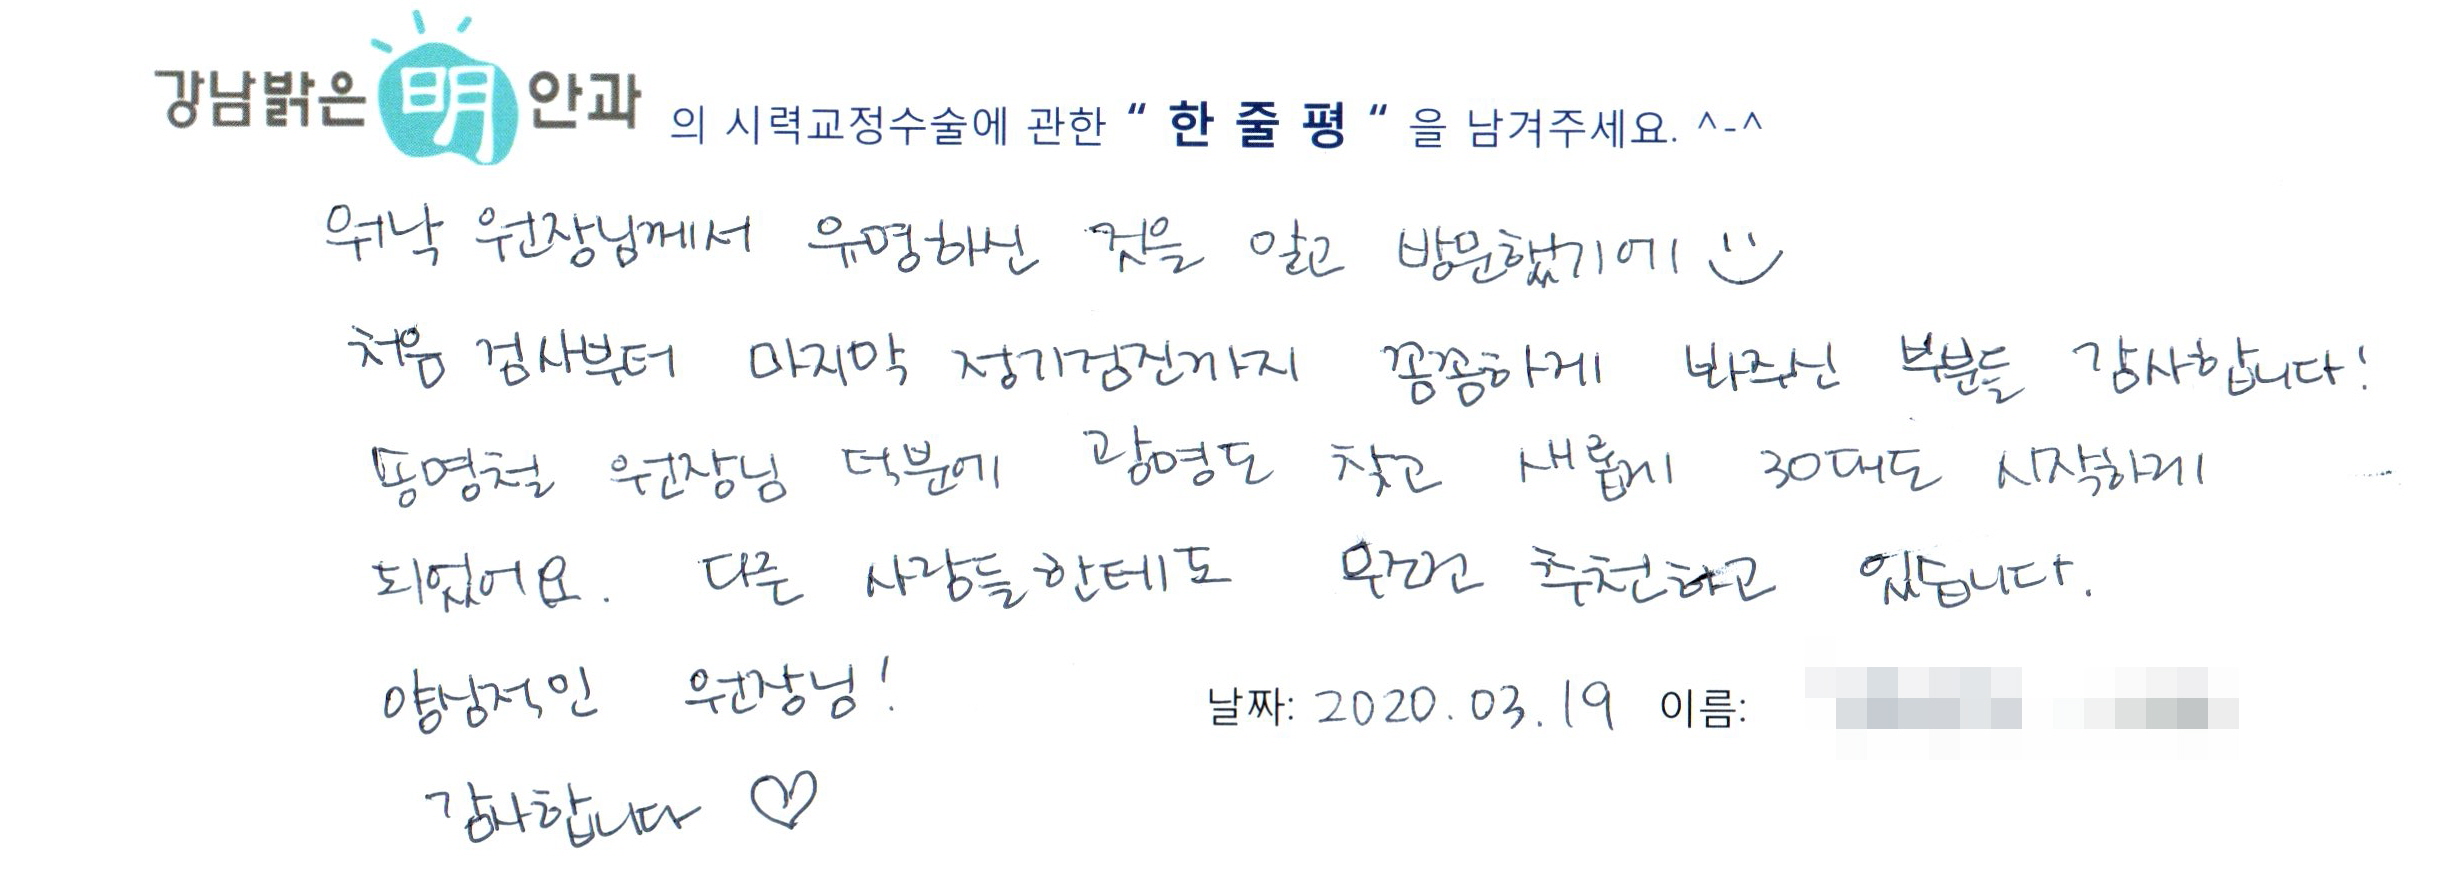 강남밝은 明 안과 의 시력교정수술에 관한 “ 한 줄 평 “ 을 남겨주세요. ^-^
워낙 원장님께서 유명하신 것을 알고 방문했기에
처음 검사부터 마지막 정기검진까지 꼼꼼하게 봐주신 부분들 감사합니다!
송명철 원장님 덕분에 광명도 찾고 새롭게 30대도 시작하게
되었어요. 다른 사람들한테도 무조건 추천하고 있습니다.
양심적인 원장님!
날짜: 2020.03.19 이름:
감사합니다 ♡